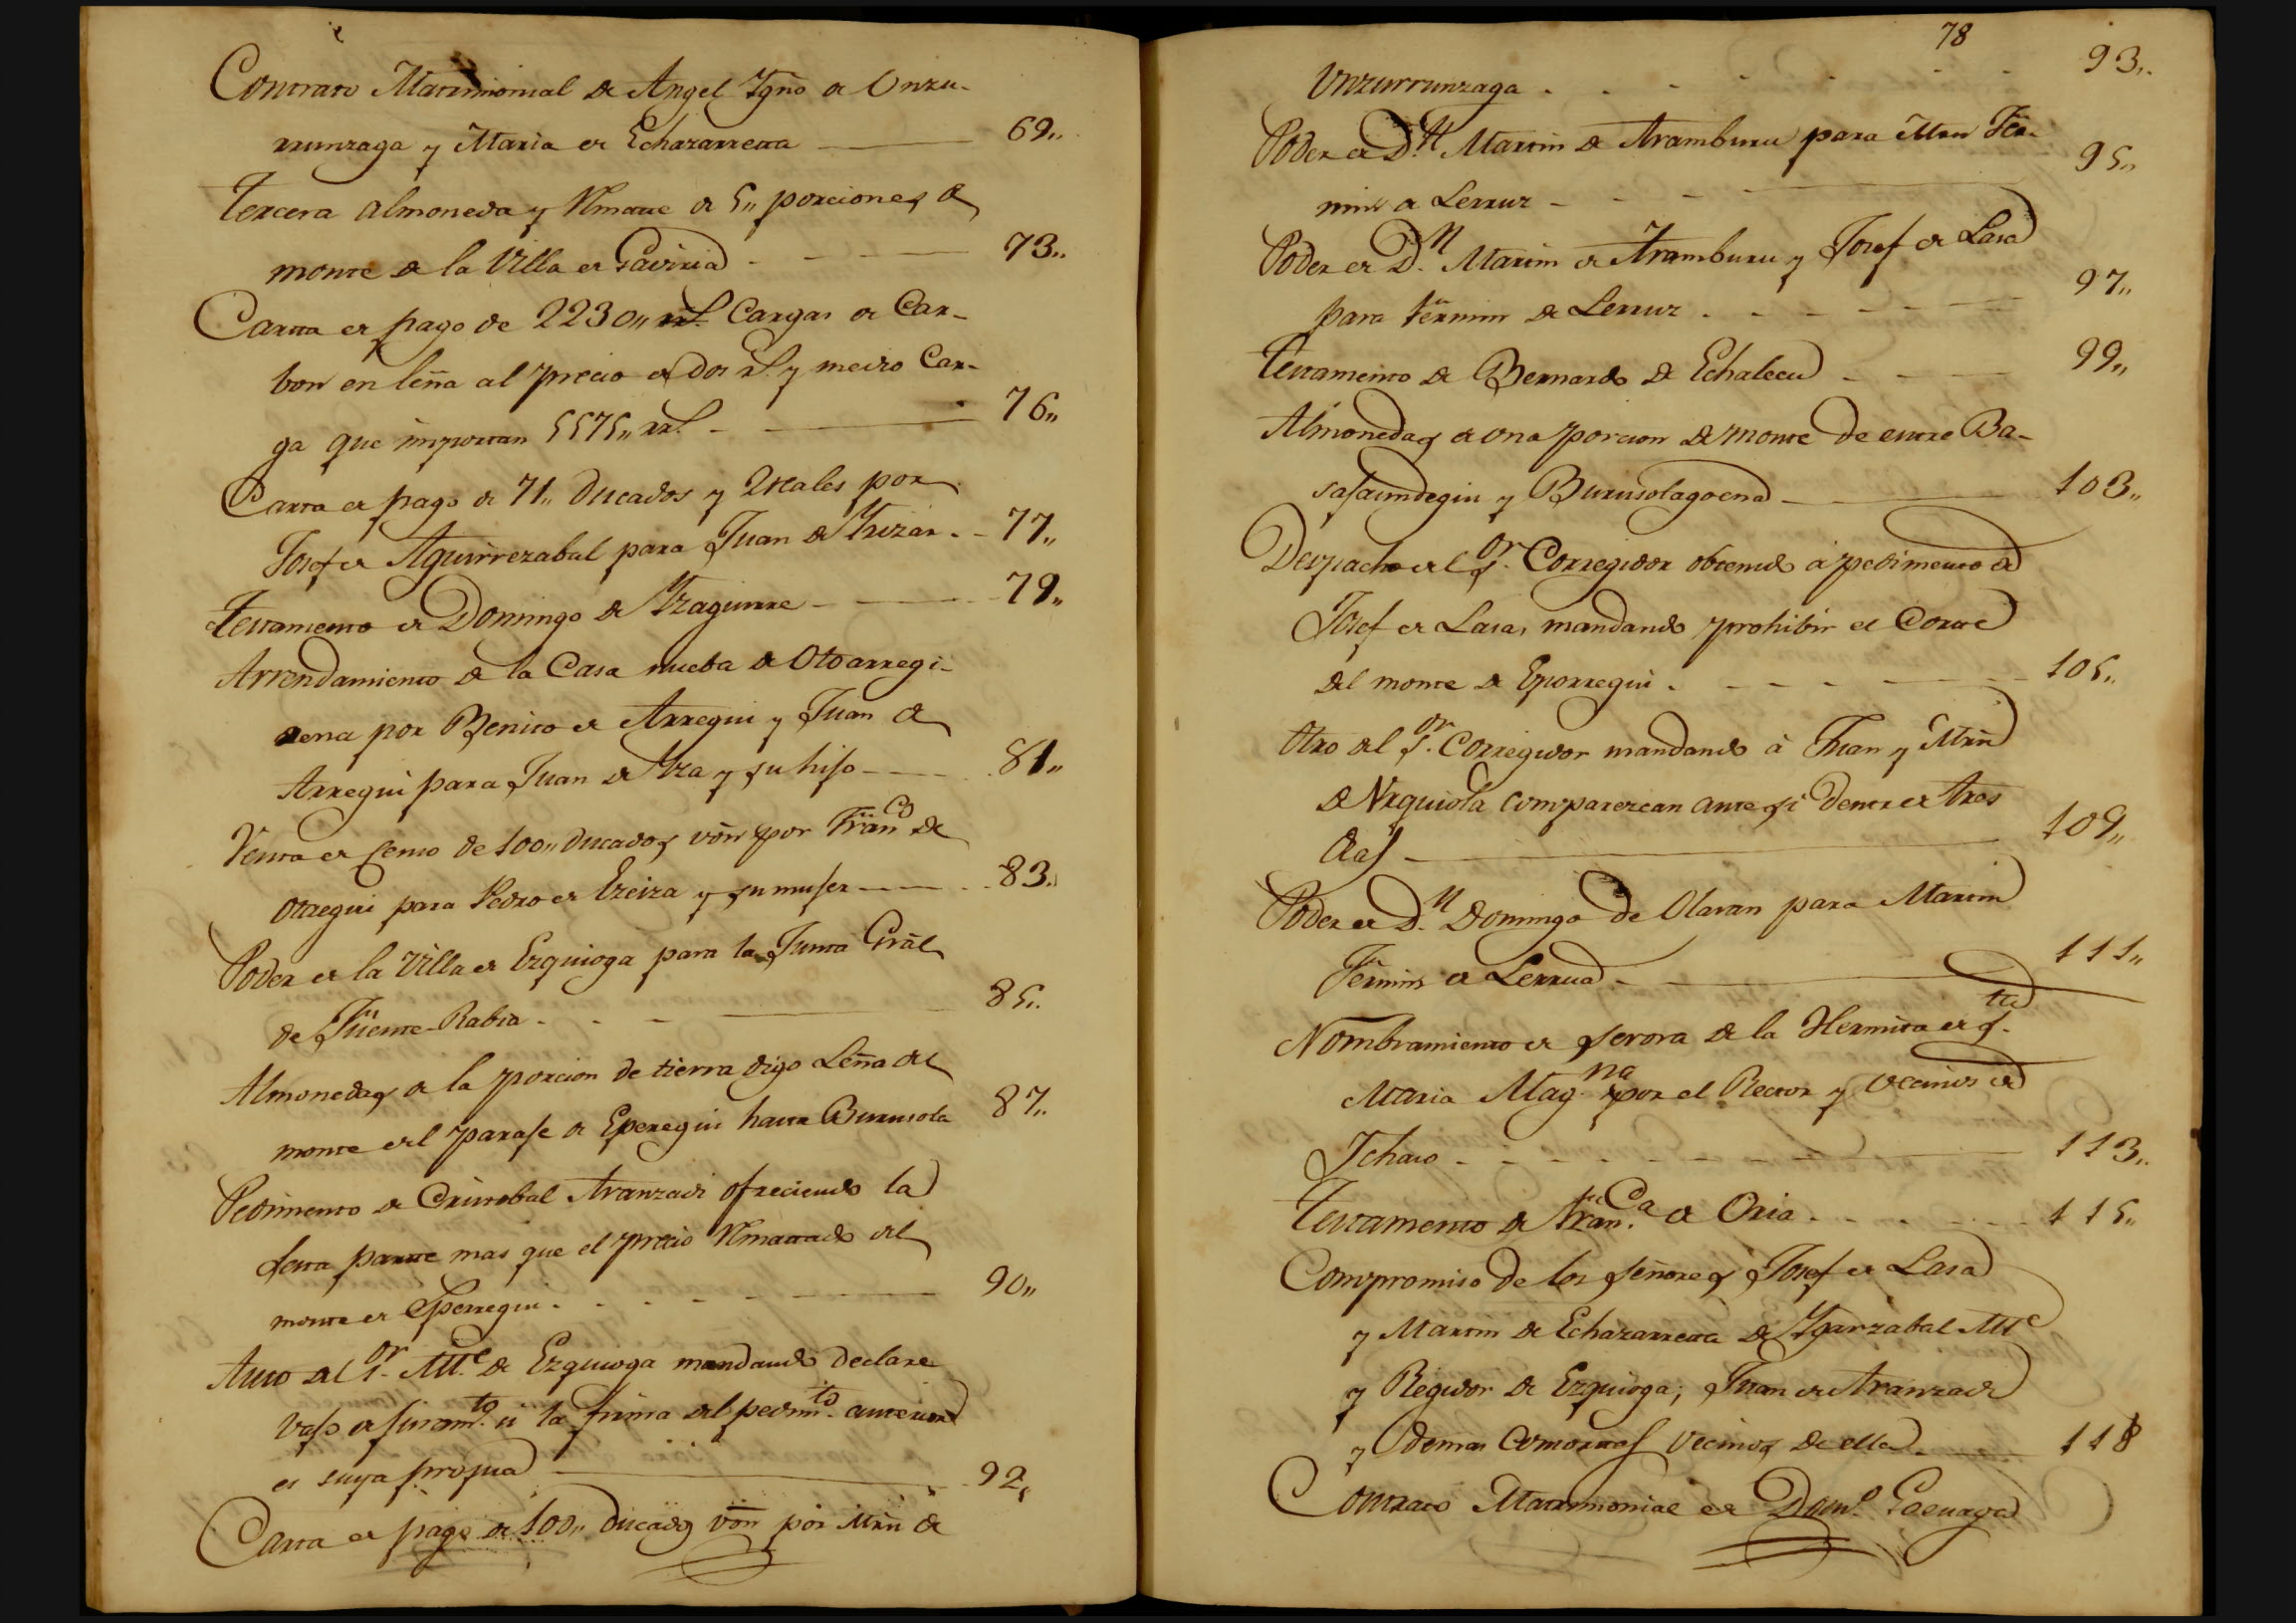 Contrato Matrimonial de Angel Ygño de Unzu-
rrunzaga y Maria de Echazarreta 69,,
Tercera almoneda y Rmate de 5,, porciones de
monte de la Villa de Gaviria 73,,
Carta de pago de 2230,, rrs. Cargas de Car-
bon en leña al precio de dos rs. y medio Car-
ga que importan 5575,, rrs. 76,,
Carta de pago de 71,, Ducados y 2 reales por
Josef de Aguirrezabal para Juan de Yrizar 77,,
Testamento de Domingo de Yzaguirre 79,,
Arrendamiento de la Casa nueba de Otoarregi-
rena por Benito de Arregui y Juan de
Arregui para Juan de Yza y su hijo 81,,
Venta de Censo de 100,, ducados vōn por Franco. de
Otaegui para Pedro de Ezeiza y su mujer 83,,
Poder de la Villa de Ezquioga para la Junta Grāl
de Fuente-Rabia 85,,
Almonedas de la porcion de tierra digo Leña del
monte del paraje de Eperegui hasta Burusola 87,,
Pedimento de Cristobal Aranzadi ofreciendo la
sesta parte mas que el precio Rmatado del
monte de Eperregui 90,,
Auto del Sor. Alle. de Ezquioga mandando declare
vajo de juramto. si la firma del pedimto. anterior
es suya propia 92,,
Carta de pago de 100,, Ducados vōn por Mrñ de
78
Unzurrunzaga 93,,
Poder de Dn. Martin de Aramburu para Mrn Fer-
min de Lerruz 95,,
Poder de Dn. Martin de Aramburu y Josef de Lasa
para Fermin de Lerruz 97,,
Testamento de Bernardo de Echalecu 99,,
Almonedas de una porcion de monte de entre Ba-
sajaundegui y Burusolagoena 103,,
Despacho del Sor. Corregidor obtenido á pedimento de
Josef de Lasa, mandando prohibir el Corte
del monte de Eporregui 105,,
Otro del Sor. Corregidor mandando á Juan y Mrñ
de Urquiola comparezcan ante si dentro de tres
dias 109,,
Poder de Dn. Domingo de Olavan para Martin
Fermin de Lerrua 111,,
Nombramiento de serora de la Hermita de Sta.
Maria Magna. por el Rector y vecinos de
Ychaso 113,,
Testamento de Franca. de Oria 115,,
Compromiso de los señores Josef de Lasa
y Martin de Echazarreta de Ygarzabal Alle
y Regidor de Ezquioga, Juan de Aranzadi
y demas Comortes vecinos de ella 118
Contrato Matrimonial de Domo. Goenaga